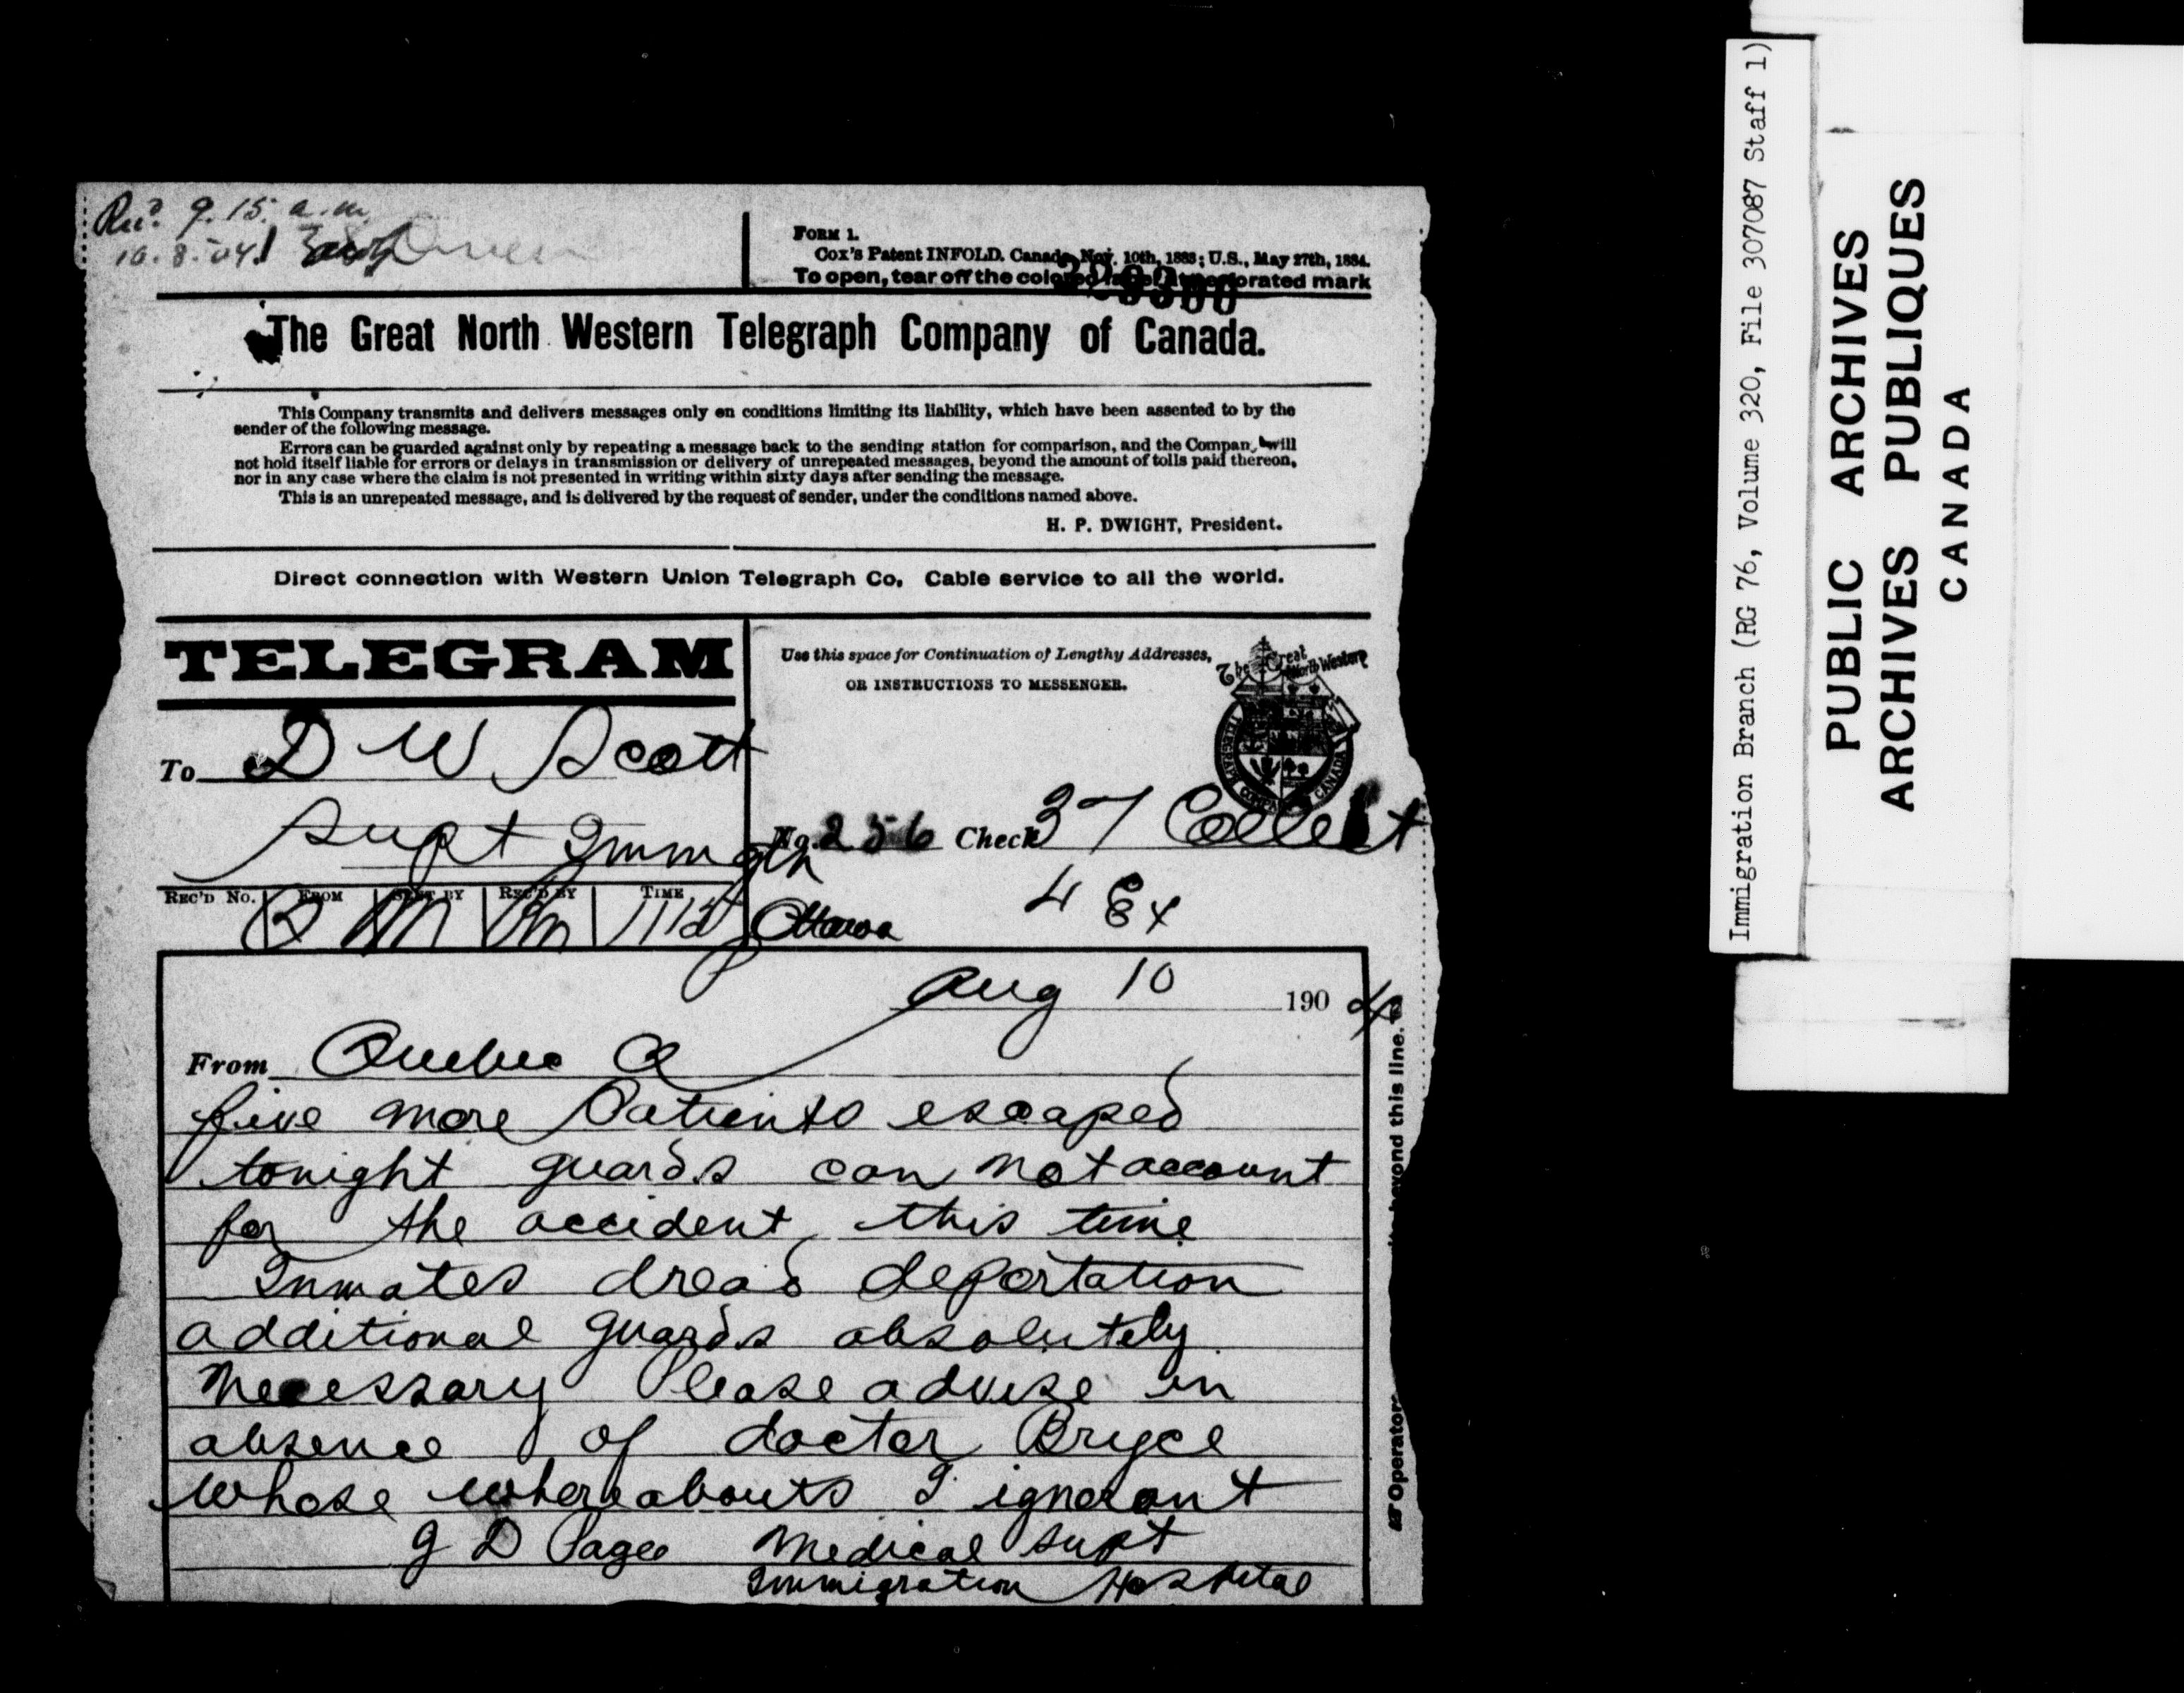 Rec'd. 9.15. a.m.
10.8.04.
FORM 1.
Cox's Patent INFOLD. Canada, Nov. 10th, 1883; U.S., May 27th, 1884.
To open, tear off the colored label at perforated mark
The Great North Western Telegraph Company of Canada.
This Company transmits and delivers messages only on conditions limiting its liability, which have been assented to by the
sender of the following message.
Errors can be guarded against only by repeating a message back to the sending station for comparison, and the Company will
not hold itself liable for errors or delays in transmission or delivery of unrepeated messages, beyond the amount of tolls paid thereon,
nor in any case where the claim is not presented in writing within sixty days after sending the message.
This is an unrepeated message, and is delivered by the request of sender, under the conditions named above.
H. P. DWIGHT, President.
Direct connection with Western Union Telegraph Co. Cable service to all the world.
TELEGRAM
Use this space for Continuation of Lengthy Addresses,
OR INSTRUCTIONS TO MESSENGER.
The Great North Western
TELEGRAPH COMPANY CANADA
To D W Scott
Supt Immgtn
No. 256 Check 37 Collect
4 Ex
REC'D NO. FROM SENT BY REC'D BY TIME
Ottawa
Aug 10 1904
From Quebec Q
five more Patients escaped
tonight guards can not account
for the accident this time
Inmates dread deportation
additional guards absolutely
necessary Please advise in
absence of doctor Bryce
whose whereabouts I ignorant
G D Page Medical Supt
Immigration Hospital
beyond this line.
Operators
Immigration Branch (RG 76, Volume 320, File 307087 Staff 1)
PUBLIC ARCHIVES
ARCHIVES PUBLIQUES
CANADA